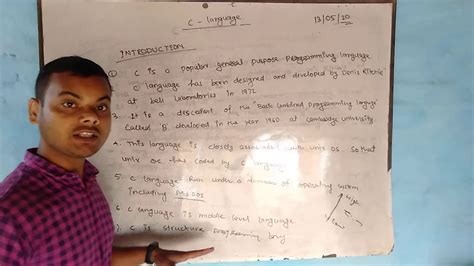 C - language
13/05/20
INTRODUCTION
① C is a popular general purpose programming language
C language has been designed and developed by Denis Ritchie
at bell Laboratories in 1972
3. It is a descendent of the Basic Combined programming
Called B developed in the year 1960 at Cambridge university.
4. This language is closely associated with unix OS. So that
unix has coded by C language
5. C language Run under a of operating system
including
6. C language is middle level language
7. C is structure programming